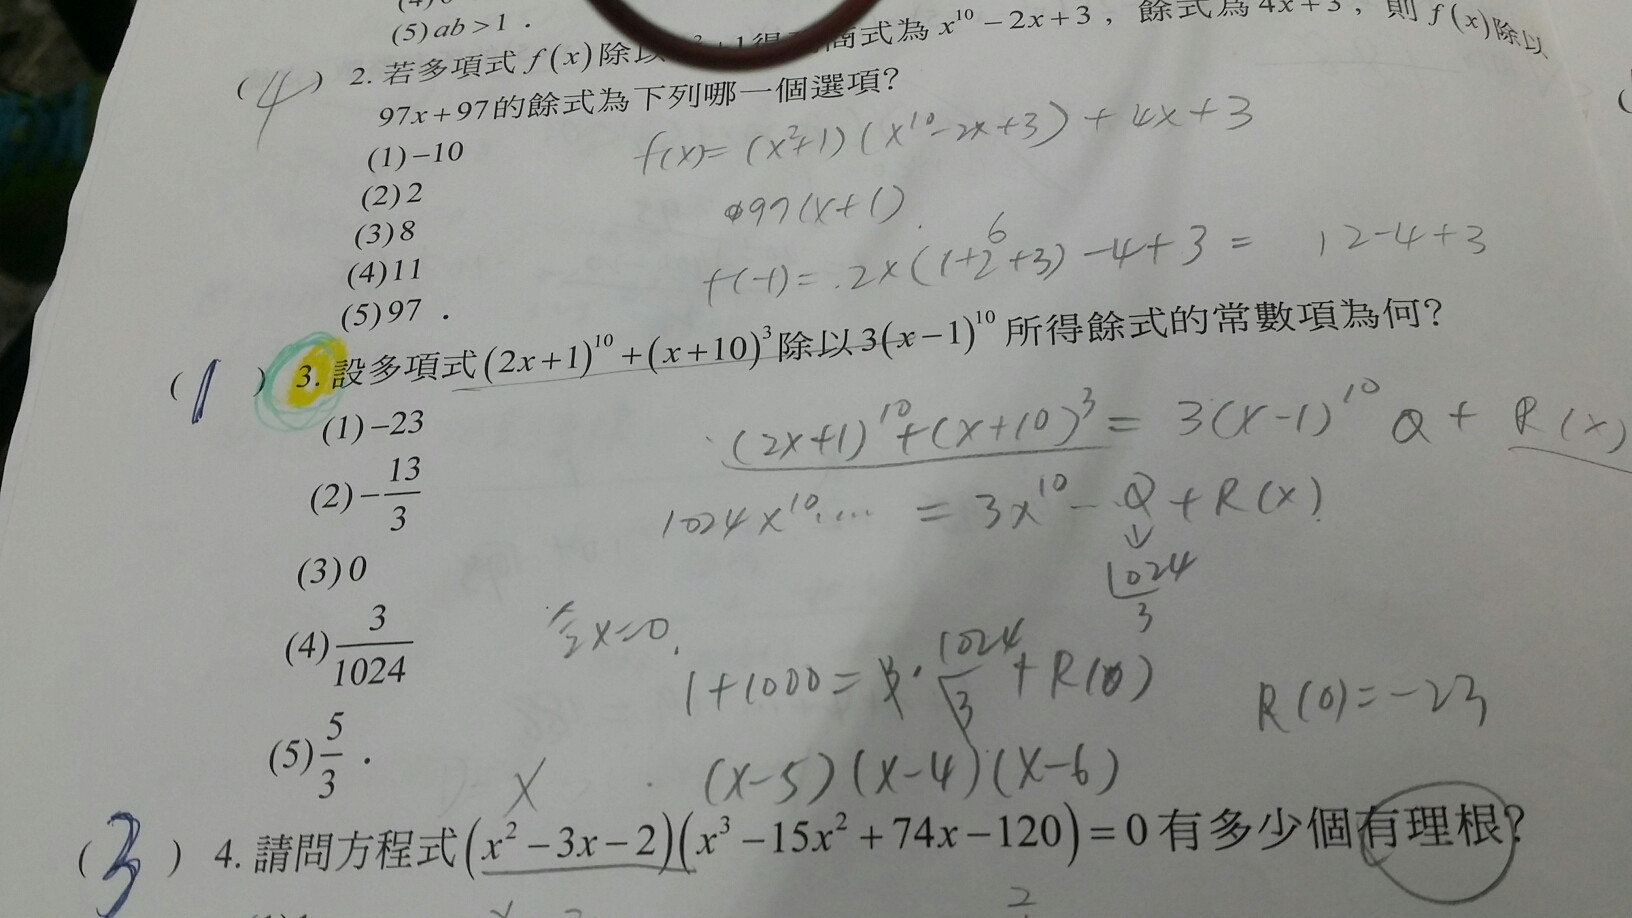 (5) ab > 1 .
(4) 2. 若多項式 f(x) 除以 得 商式為 x¹⁰ − 2x + 3 , 餘式為 4x + 3 , 則 f(x) 除以
97x + 97 的餘式為下列哪一個選項?
f(x) = (x²+1) (x¹⁰ − 2x + 3) + 4x + 3
(1) −10
(2) 2
97(x+1)
(3) 8
6
(4) 11
f(−1) = 2 × (1+2+3) − 4 + 3 = 12 − 4 + 3
(5) 97 .
(1) 3. 設多項式 (2x+1)¹⁰ + (x+10)³ 除以 3(x−1)¹⁰ 所得餘式的常數項為何?
(1) −23
(2x+1)¹⁰ + (x+10)³ = 3(x−1)¹⁰ Q + R(x)
(2) −13/3
1024x¹⁰.... = 3x¹⁰ − Q + R(x)
(3) 0
1024/3
(4) 3/1024
令x=0,
1+1000 = 3 · 1024/3 + R(0)
R(0) = −23
(5) 5/3 .
x (x−5)(x−4)(x−6)
(3) 4. 請問方程式 (x² − 3x − 2)(x³ − 15x² + 74x − 120) = 0 有多少個有理根?